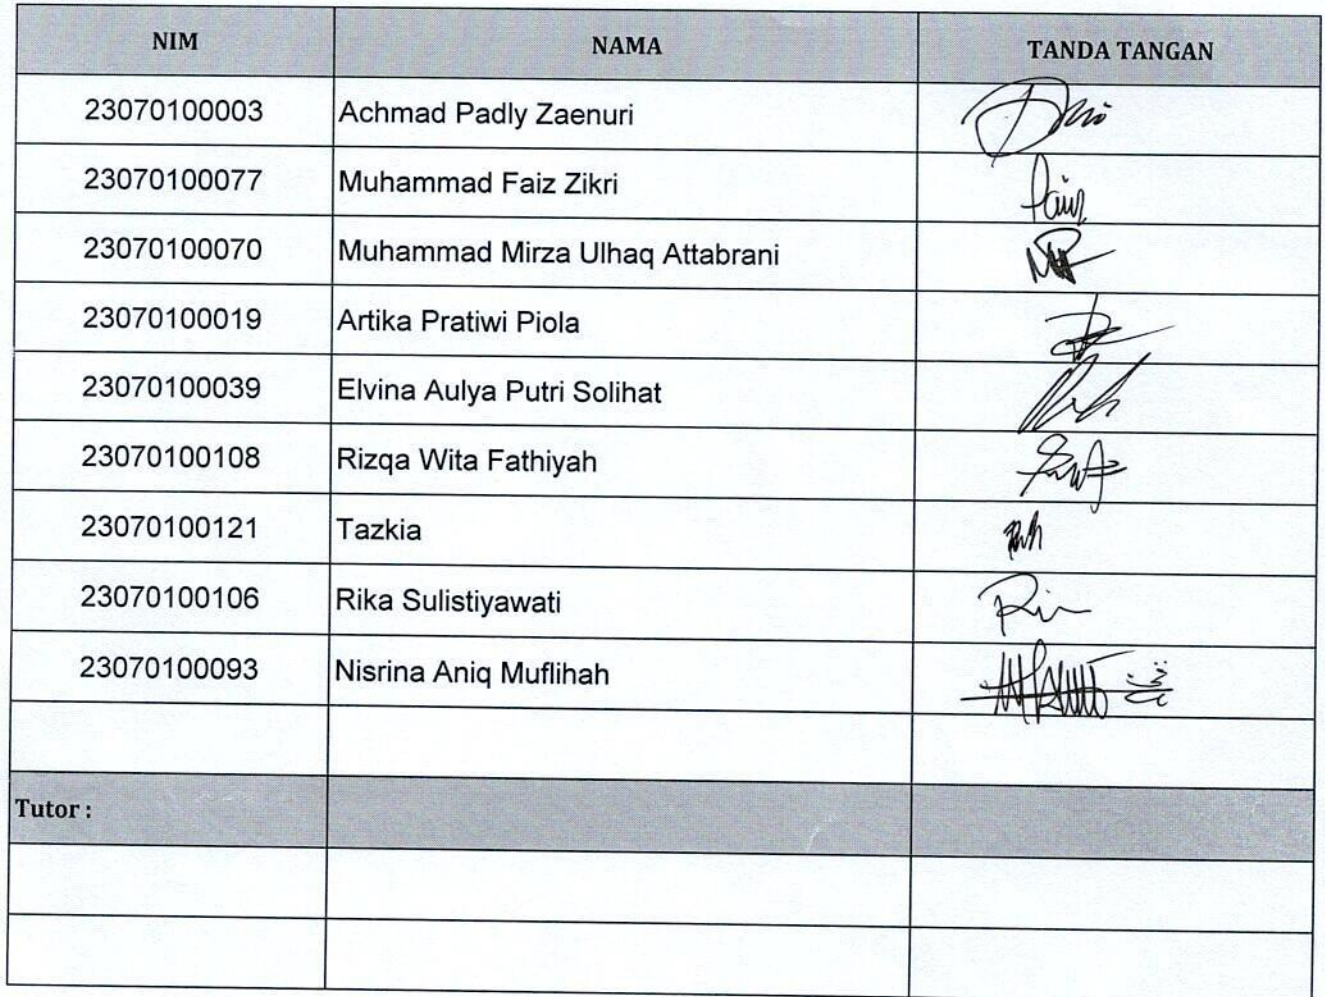 NIM NAMA TANDA TANGAN
23070100003 Achmad Padly Zaenuri
23070100077 Muhammad Faiz Zikri Faiz
23070100070 Muhammad Mirza Ulhaq Attabrani
23070100019 Artika Pratiwi Piola
23070100039 Elvina Aulya Putri Solihat
23070100108 Rizqa Wita Fathiyah
23070100121 Tazkia
23070100106 Rika Sulistiyawati
23070100093 Nisrina Aniq Muflihah
Tutor :